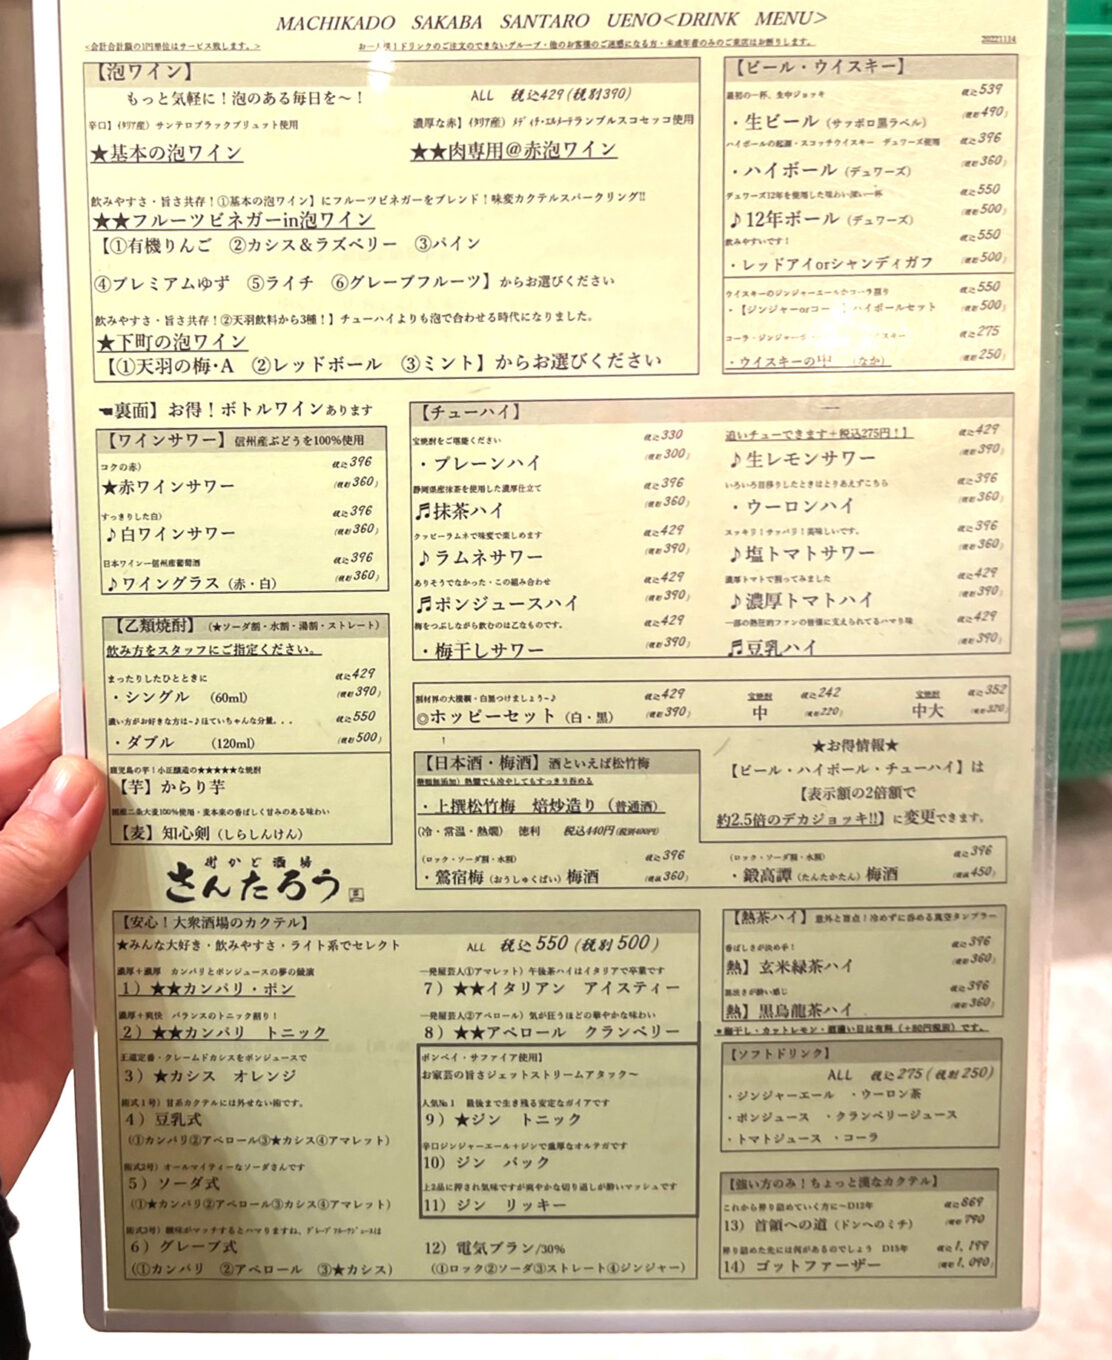 MACHIKADO SAKABA SANTARO UENO<DRINK MENU>
<会計合計額の1円単位はサービス致します。>
お一人様1ドリンクのご注文のできないグループ・他のお客様のご迷惑になる方・未成年者のみのご来店はお断りします。
20221114
【泡ワイン】
もっと気軽に！泡のある毎日を〜！
ALL 税込429(税別390)
辛口】(イタリア産) サンテロブラックブリュット使用
★基本の泡ワイン
濃厚な赤】(イタリア産) メディチ・エルメーテランブルスコセッコ使用
★★肉専用@赤泡ワイン
飲みやすさ・旨さ共存！①基本の泡ワイン】にフルーツビネガーをブレンド！味変カクテルスパークリング!!
★★フルーツビネガーin泡ワイン
【①有機りんご ②カシス＆ラズベリー ③パイン
④プレミアムゆず ⑤ライチ ⑥グレープフルーツ】からお選びください
飲みやすさ・旨さ共存！②天羽飲料から3種！】チューハイよりも泡で合わせる時代になりました。
★下町の泡ワイン
【①天羽の梅・A ②レッドボール ③ミント】からお選びください
【ビール・ウイスキー】
最初の一杯、生中ジョッキ 税込539
・生ビール（サッポロ黒ラベル） (税別490)
ハイボールの起源・スコッチウイスキー デュワーズ使用 税込396
・ハイボール（デュワーズ） (税別360)
デュワーズ12年を使用した味わい深い一杯 税込550
♪12年ボール（デュワーズ） (税別500)
飲みやすいです！ 税込550
・レッドアイorシャンディガフ (税別500)
ウイスキーのジンジャーエールかコーラ割り 税込550
・【ジンジャーorコー 】ハイボールセット (税別500)
コーラ・ジンジャー スキー 税込275
・ウイスキーの中 （なか） (税別250)
裏面】お得！ボトルワインあります
【ワインサワー】信州産ぶどうを100%使用
コクの赤） 税込396
★赤ワインサワー (税別360)
すっきりした白） 税込396
♪白ワインサワー (税別360)
日本ワイン―信州産葡萄酒 税込396
♪ワイングラス（赤・白） (税別360)
【チューハイ】
宝焼酎をご堪能ください 税込330
・プレーンハイ (税別300)
静岡県産抹茶を使用した濃厚仕立て 税込396
♬抹茶ハイ (税別360)
クッピーラムネで味変で楽しめます 税込429
♪ラムネサワー (税別390)
ありそうでなかった・この組み合わせ 税込429
♬ポンジュースハイ (税別390)
梅をつぶしながら飲むのは乙なものです。 税込429
・梅干しサワー (税別390)
追いチューできます＋税込275円！】 税込429
♪生レモンサワー (税別390)
いろいろ目移りしたときはとりあえずこちら 税込396
・ウーロンハイ (税別360)
スッキリ！サッパリ！美味しいです。 税込396
♪塩トマトサワー (税別360)
濃厚トマトで割ってみました 税込429
♪濃厚トマトハイ (税別390)
一部の熱狂的ファンの皆様に支えられてるハマり味 税込429
♬豆乳ハイ (税別390)
【乙類焼酎】（★ソーダ割・水割・湯割・ストレート）
飲み方をスタッフにご指定ください。
まったりしたひとときに 税込429
・シングル (60ml) (税別390)
濃い方がお好きな方は〜♪ほていちゃんな分量．．． 税込550
・ダブル (120ml) (税別500)
鹿児島の芋！小正醸造の★★★★★な焼酎
【芋】からり芋
国産二条大麦100%使用・麦本来の香ばしく甘みのある味わい
【麦】知心剣（しらしんけん）
割材界の大横綱・白黒つけましょう〜♪ 税込429
◎ホッピーセット（白・黒） (税別390)
宝焼酎 税込242
中 (税別220)
宝焼酎 税込352
中大 (税別320)
【日本酒・梅酒】酒といえば松竹梅
糖類無添加）熱燗でも冷やしてもすっきり呑める
・上撰松竹梅 焙炒造り（普通酒）
（冷・常温・熱燗） 徳利 税込440円(税別400円)
（ロック・ソーダ割・水割） 税込396
・鶯宿梅（おうしゅくばい）梅酒 (税別360)
★お得情報★
【ビール・ハイボール・チューハイ】は
【表示額の2倍額で
約2.5倍のデカジョッキ!!】に変更できます。
（ロック・ソーダ割・水割） 税込396
・鍛高譚（たんたかたん）梅酒 (税別450)
街かど酒場
さんたろう
【安心！大衆酒場のカクテル】
★みんな大好き・飲みやすさ・ライト系でセレクト ALL 税込550(税別500)
濃厚＋濃厚 カンパリとポンジュースの夢の競演
1）★★カンパリ・ポン
濃厚＋爽快 バランスのトニック割り！
2）★★カンパリ トニック
王道定番・クレームドカシスをポンジュースで
3）★カシス オレンジ
術式1号）甘系カクテルには外せない術です。
4）豆乳式
（①カンパリ②アペロール③★カシス④アマレット）
術式2号）オールマイティーなソーダさんです
5）ソーダ式
（①★カンパリ②アペロール③カシス④アマレット）
術式3号）趣味がマッチするとハマりますね、グレープフルーツジュースは
6）グレープ式
（①カンパリ ②アペロール ③★カシス）
一発屋芸人①アマレット）午後茶ハイはイタリアで卒業です
7）★★イタリアン アイスティー
一発屋芸人②アペロール）気が狂うほどの華やかな味わい
8）★★アペロール クランベリー
ボンベイ・サファイア使用】
お家芸の旨さジェットストリームアタック〜
人気№1 最後まで生き残る安定なガイアです
9）★ジン トニック
辛口ジンジャーエール＋ジンで重厚なオルテガです
10）ジン バック
上2品に押され気味ですが爽やかな切り返しが酔いマッシュです
11）ジン リッキー
12）電気ブラン/30%
（①ロック②ソーダ③ストレート④ジンジャー）
【熱茶ハイ】意外と盲点！冷めずに呑める真空タンブラー
香ばしさが決め手！ 税込396
熱】玄米緑茶ハイ (税別360)
黒渋さが酔い感じ 税込396
熱】黒烏龍茶ハイ (税別360)
★梅干し・カットレモン・超濃い目は有料（＋80円税別）です。
【ソフトドリンク】
ALL 税込275(税別250)
・ジンジャーエール ・ウーロン茶
・ポンジュース ・クランベリージュース
・トマトジュース ・コーラ
【強い方のみ！ちょっと漢なカクテル】
これから昇り詰めていく方に〜D12年 税込869
13）首領への道（ドンへのミチ） (税別790)
昇り詰めた先には何があるのでしょう D15年 税込1,199
14）ゴットファーザー (税別1,090)